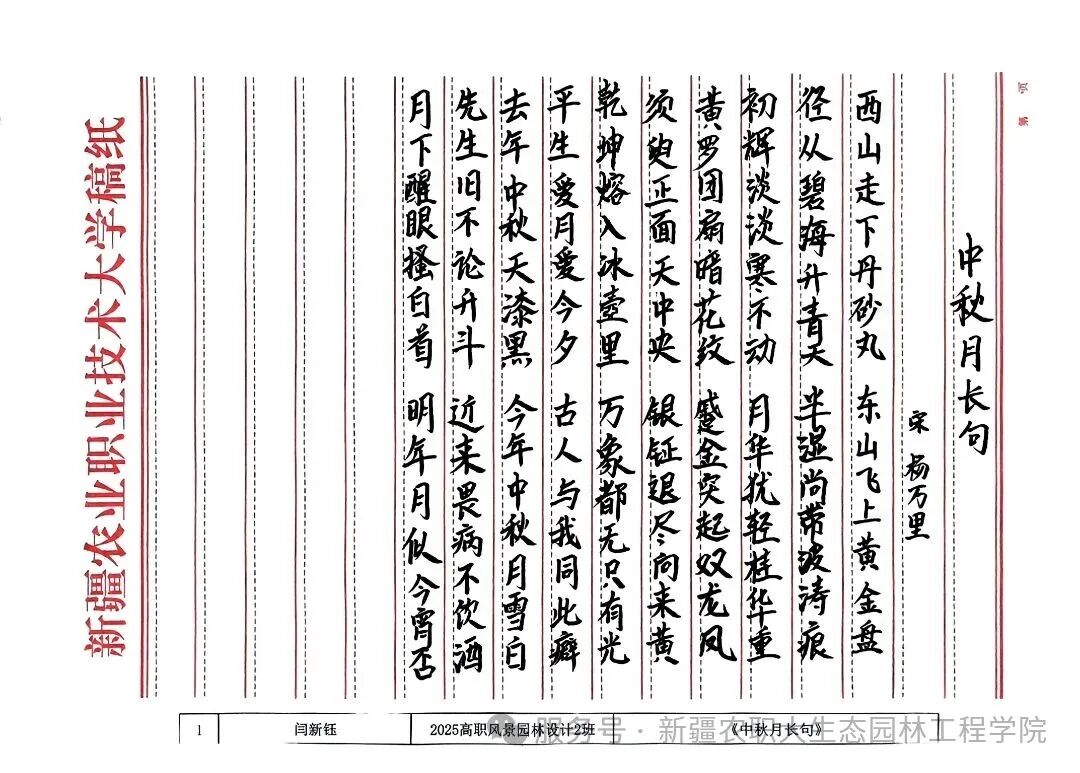 第 页
中秋月长句
宋 杨万里
西山走下丹砂丸 东山飞上黄金盘
径从碧海升青天 半湿尚带波涛痕
初辉淡淡寒不动 月华犹轻桂华重
黄罗团扇暗花纹 蹙金突起双龙凤
须臾正面天中央 银钲退尽向来黄
乾坤熔入冰壶里 万象都无只有光
平生爱月爱今夕 古人与我同此癖
去年中秋天漆黑 今年中秋月雪白
先生旧不论升斗 近来畏病不饮酒
月下醒眼搔白首 明年月似今宵否
新疆农业职业技术大学稿纸
1 闫新钰 2025高职风景园林设计2班 《中秋月长句》
服务号·新疆农职大生态园林工程学院